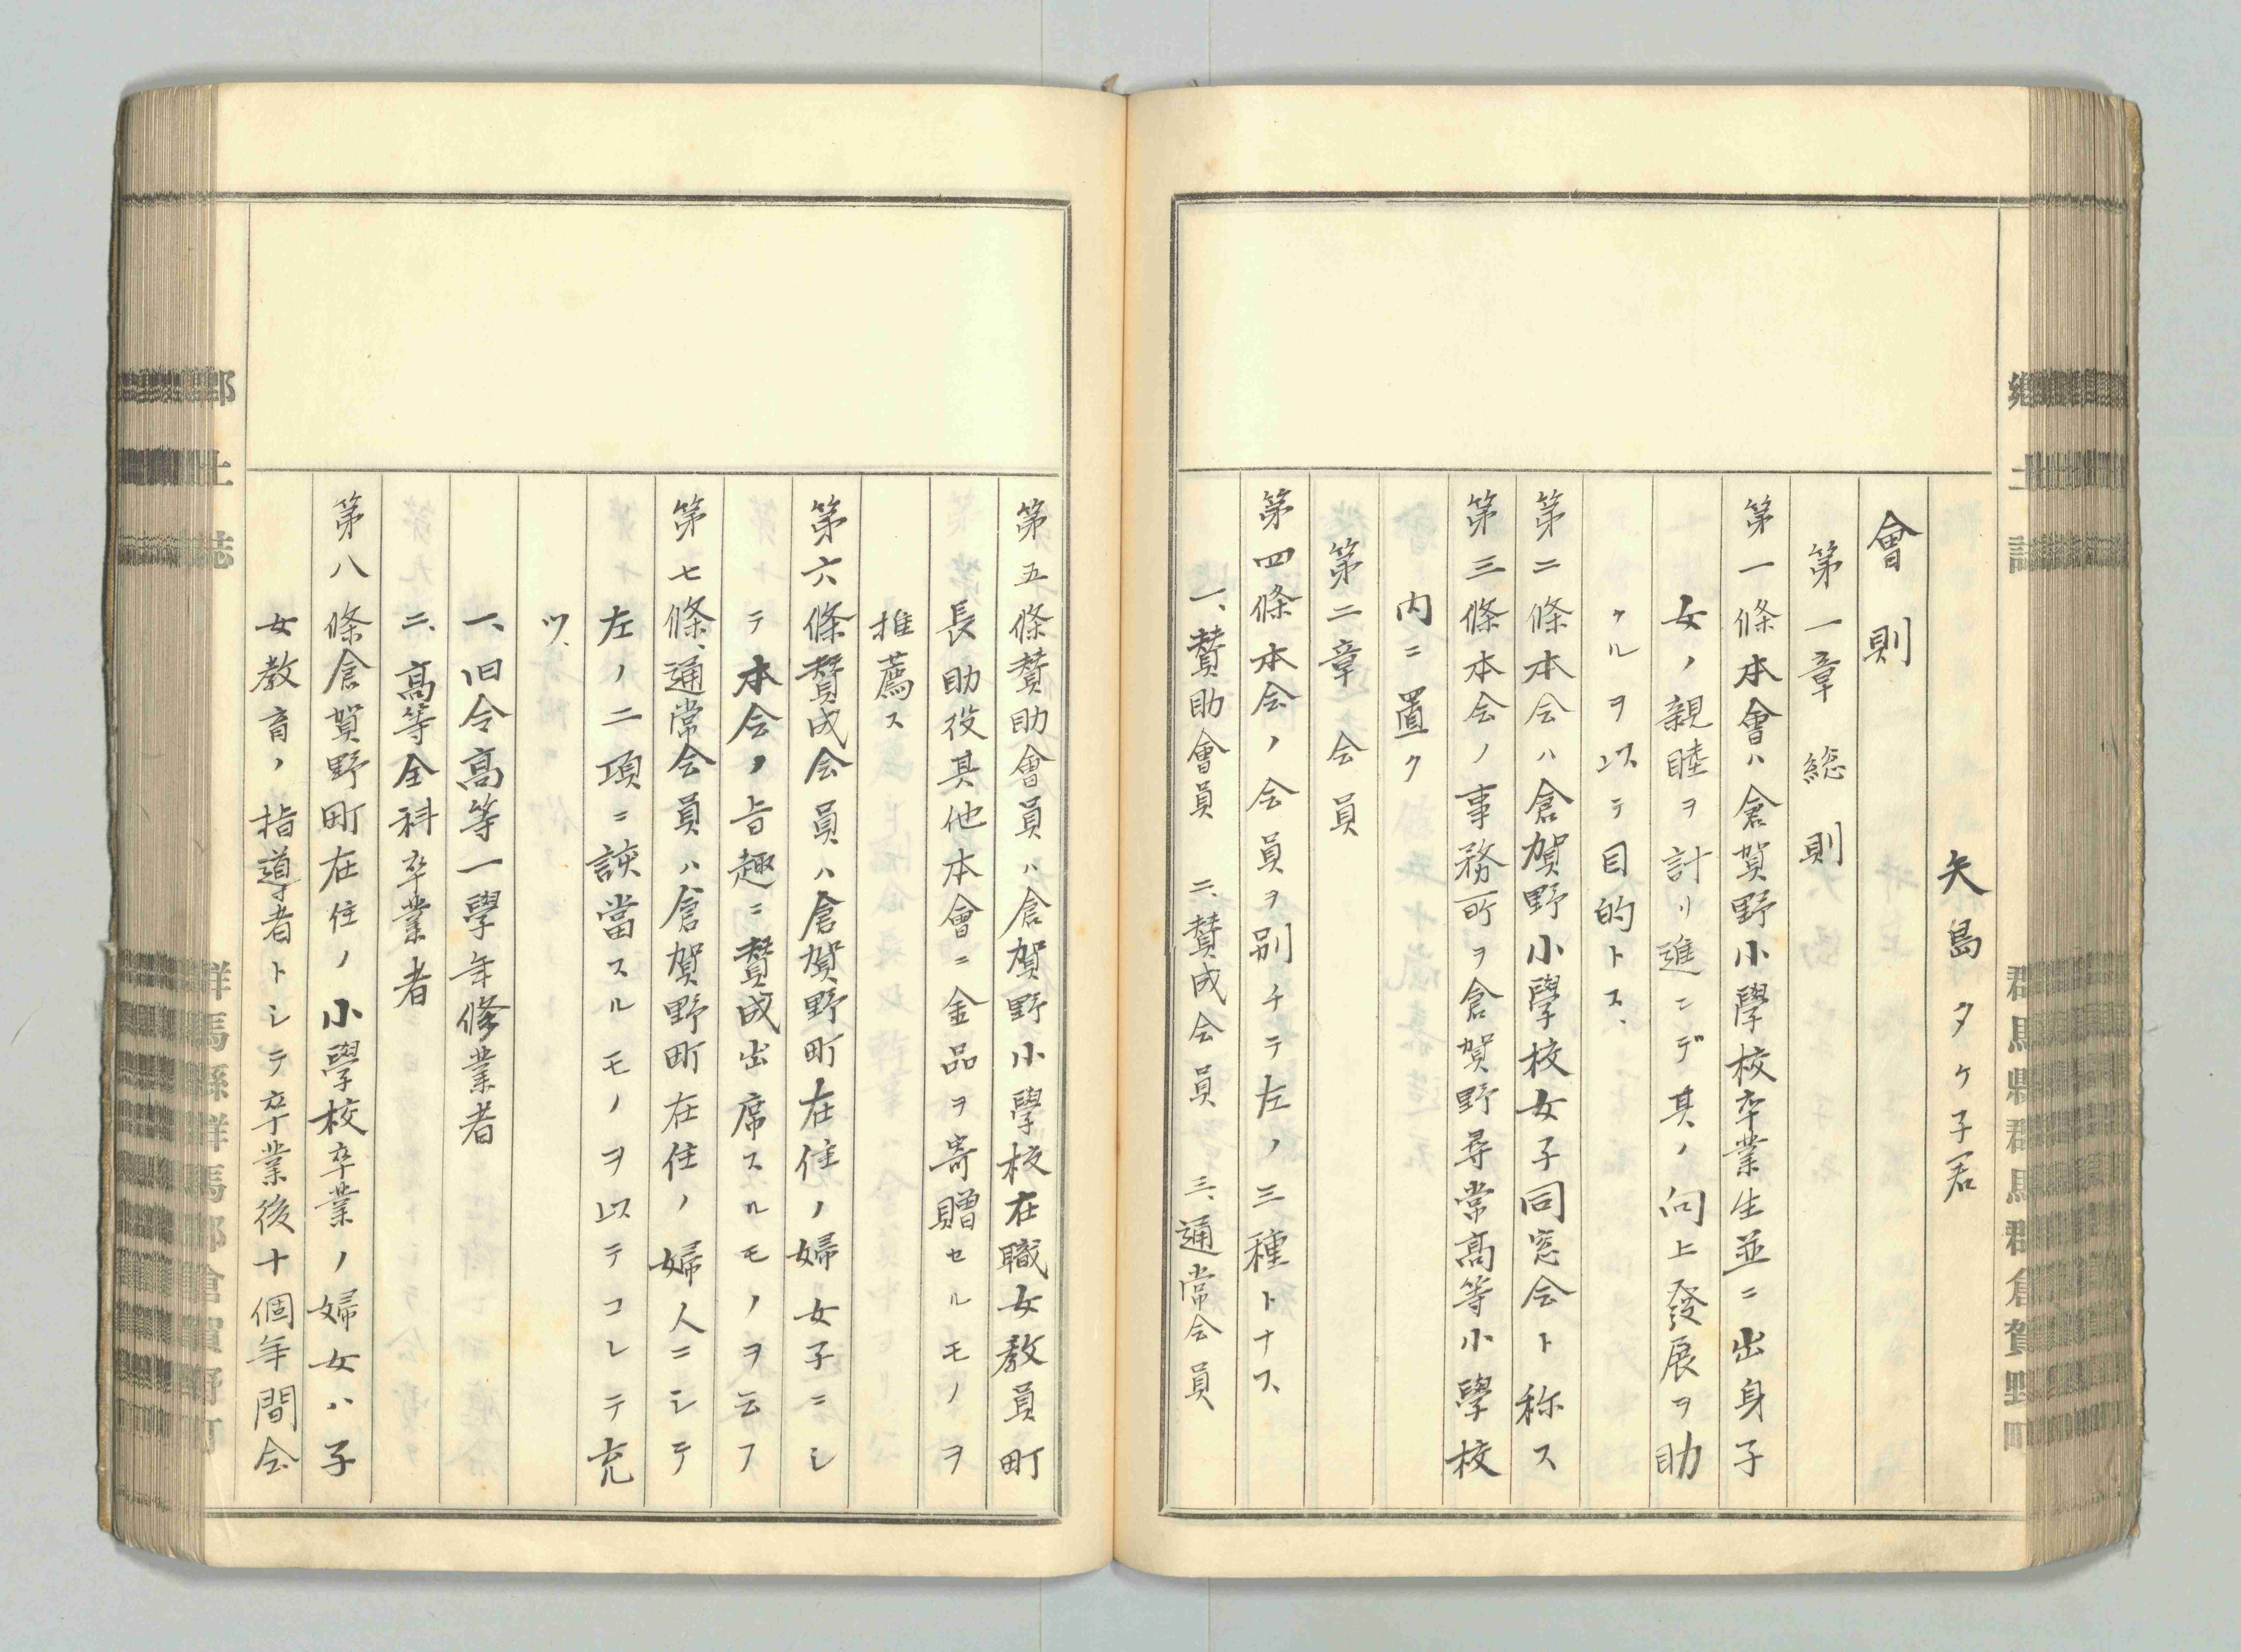 鄕土誌
群馬縣群馬郡倉賀野町
矢島タケ子君
會則
第一章 総則
第一條 本會ハ倉賀野小學校卒業生並ニ出身子
女ノ親睦ヲ計リ進ンデ其ノ向上發展ヲ助
ケルヲ以テ目的トス、
第二條 本会ハ倉賀野小學校女子同窓会ト称ス
第三條 本会ノ事務所ヲ倉賀野尋常高等小學校
内ニ置ク
第二章 会員
第四條 本会ノ会員ヲ別チテ左ノ三種トナス
一、賛助會員 二、賛成会員 三、通常会員
第五條 賛助會員ハ倉賀野小學校在職女教員町
長助役其他本會ニ金品ヲ寄贈セルモノヲ
推薦ス
第六條 賛成会員ハ倉賀野町在住ノ婦女子ニシ
テ本会ノ旨趣ニ賛成出席スルモノヲ云フ
第七條、通常会員ハ倉賀野町在住ノ婦人ニシテ
左ノ二項ニ該當スルモノヲ以テコレテ充
ツ、
一、旧令高等一學年修業者
二、高等全科卒業者
第八條 倉賀野町在住ノ小學校卒業ノ婦女ハ子
女教育ノ指導者トシテ卒業後十個年間会
鄕土誌
群馬縣群馬郡倉賀野町